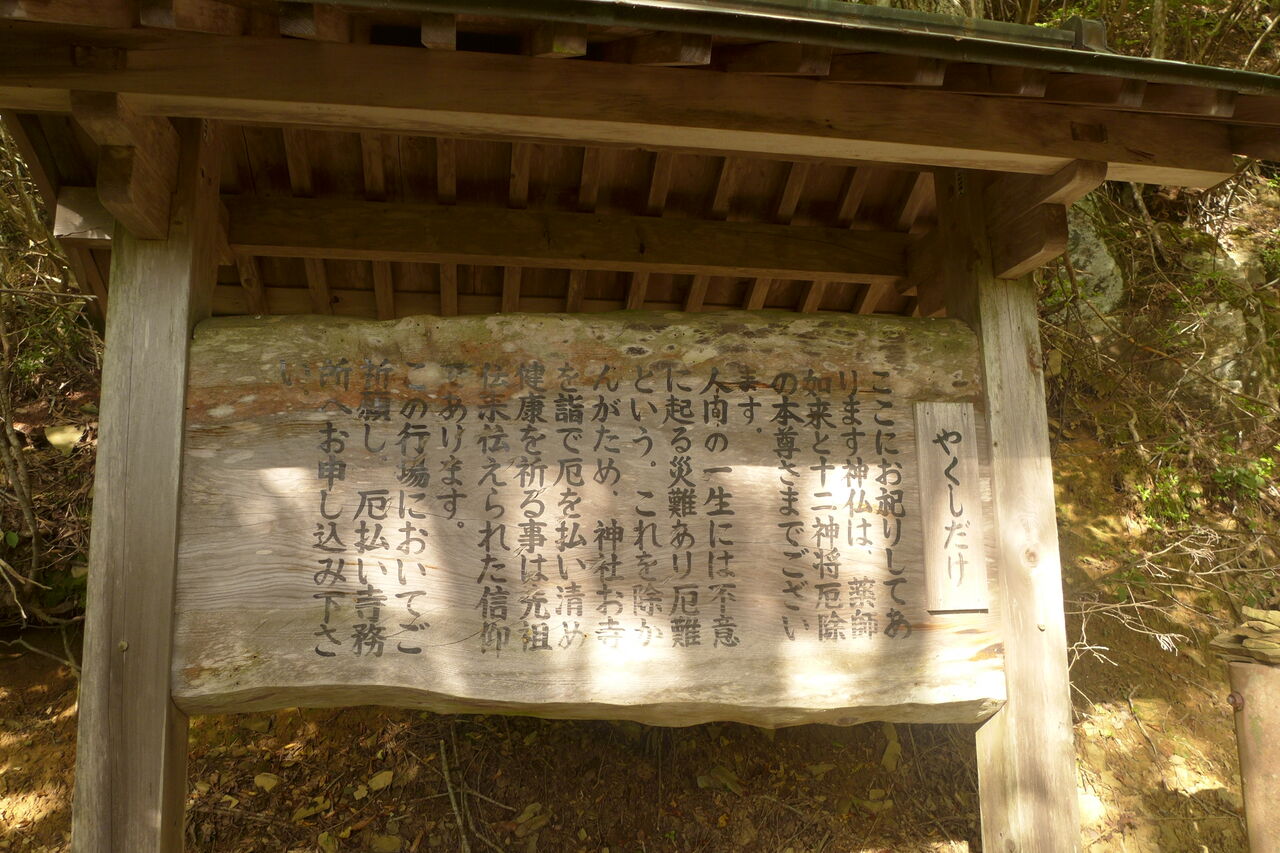 やくしだけ
ここにお祀りしてあ
ります神仏は、薬師
如来と十二神将厄除
の本尊さまでござい
ます。
人間の一生には不意
に起る災難あり厄難
という。これを除か
んがため、神社お寺
を詣で厄を払い清め
健康を祈る事は先祖
伝来伝えられた信仰
であります。
この行場においてご
祈願し、厄払い寺務
所へお申し込み下さ
い。